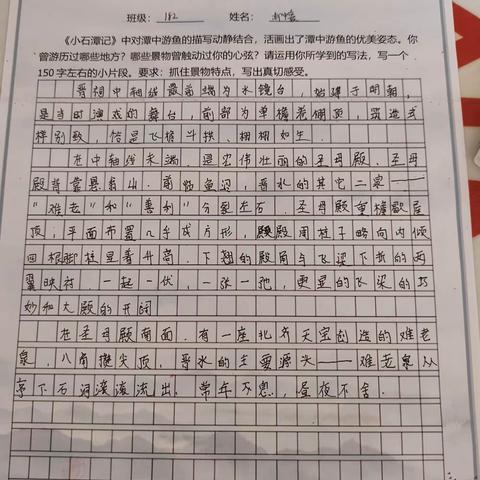 班级：182 姓名：
《小石潭记》中对潭中游鱼的描写动静结合，活画出了潭中游鱼的优美姿态。你
曾游历过哪些地方？哪些景物曾触动过你的心弦？请运用你所学到的写法，写一个
150字左右的小片段。要求：抓住景物特点，写出真切感受。
晋祠中轴线最前端为水镜台，始建于明朝，
是当时演戏的舞台，前部为单檐卷棚顶，筑造式
样别致，恰是飞檐斗拱、栩栩如生。
在中轴线末端，是宏伟壮丽的圣母殿。圣母
殿背靠悬瓮山，前临鱼沼，晋水的其它二泉——
“难老”和“善利”分裂左右。圣母殿重檐歇屋
顶，平面布置几乎成方形，殿角柱子略向内倾
四根脚柱显著升高，下翘的殿角与飞梁下折的两
翼映衬，一起一伏，一张一弛，更显的飞梁的巧
妙和大殿的开阔
在圣母殿南面，有一座北齐天宝创造的难老
泉，八角攒尖顶，晋水的主要源头——难老泉从
亭下石洞滚滚流出，常年不息，昼夜不舍。